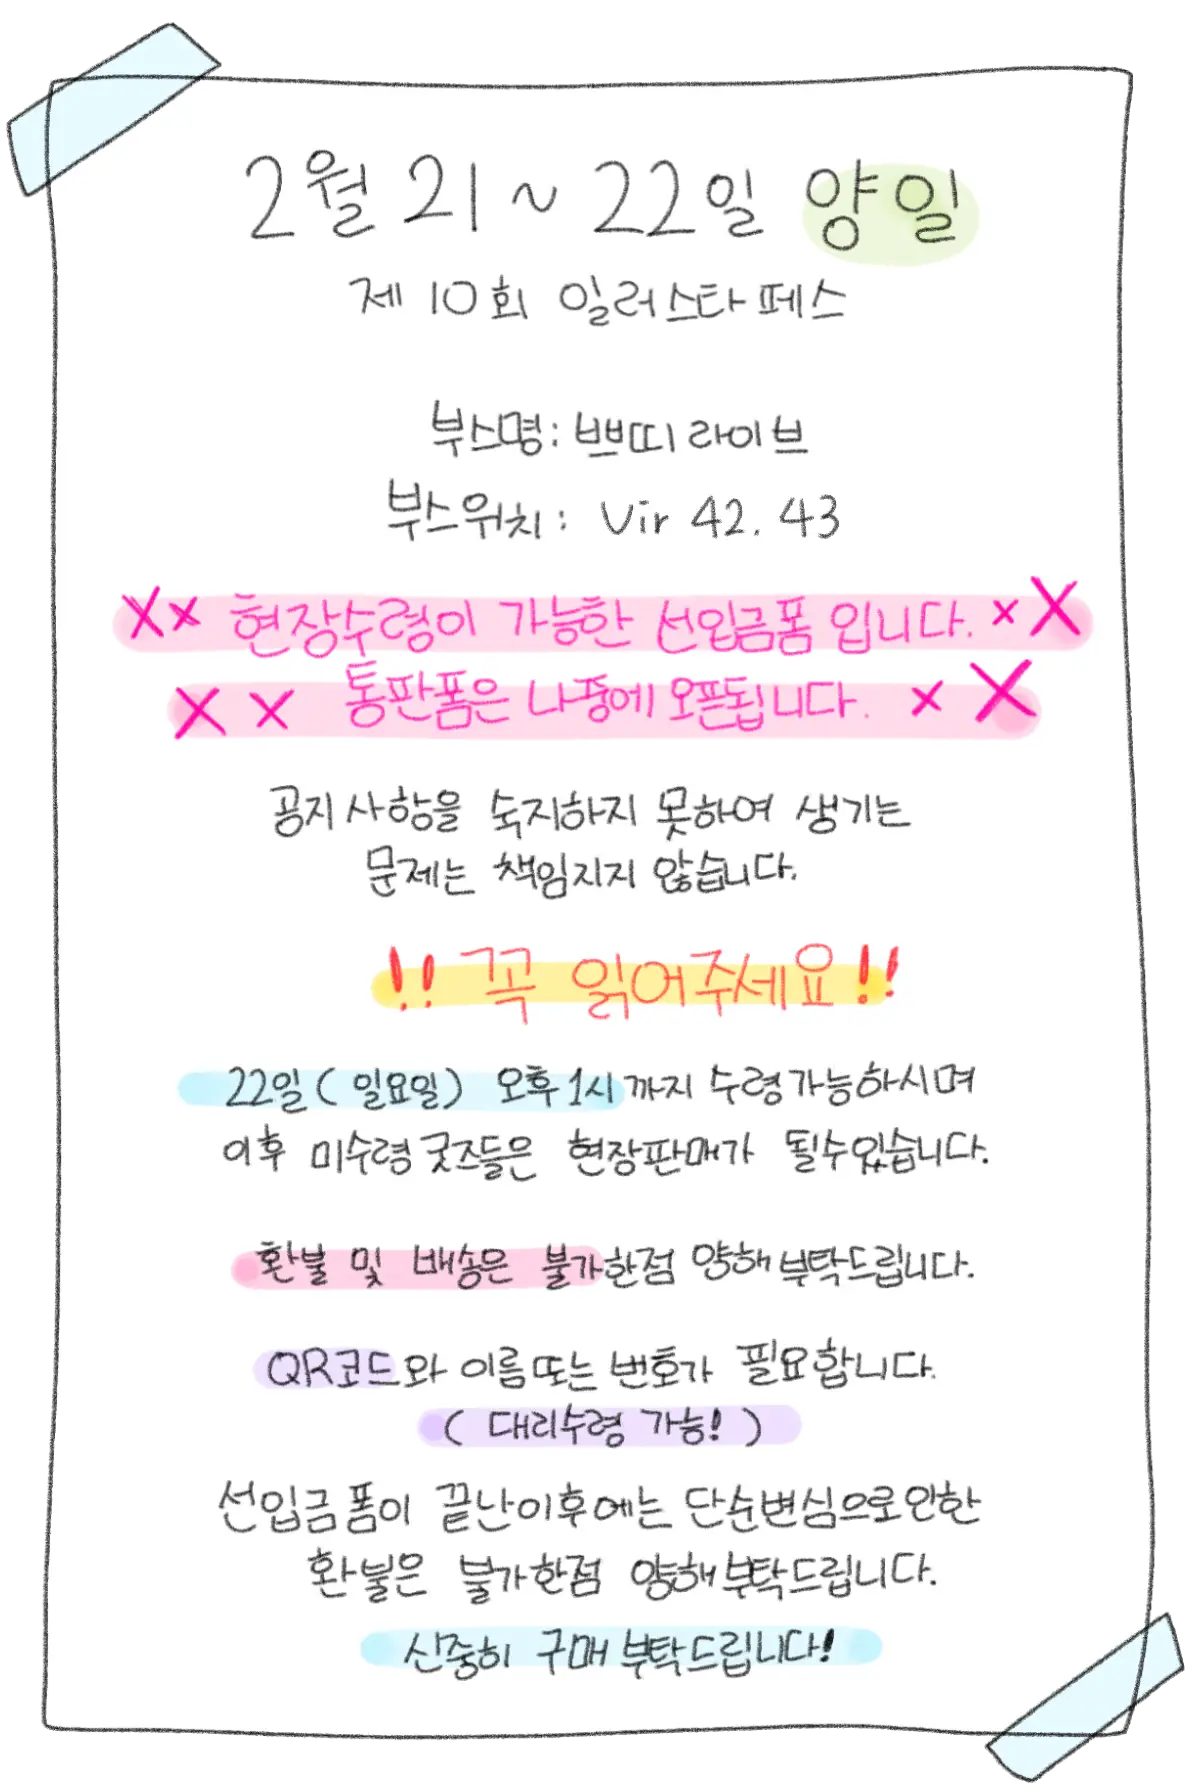 2월 21 ~ 22일 양일
제 10회 일러스타 페스
부스명 : 쁘띠 라이브
부스위치 : Vir 42. 43
XX 현장수령이 가능한 선입금폼 입니다. XX
X X 통판폼은 나중에 오픈됩니다. X X
공지 사항을 숙지하지 못하여 생기는
문제는 책임지지 않습니다.
!! 꼭 읽어주세요 !!
22일 ( 일요일 ) 오후 1시 까지 수령 가능하시며
이후 미수령 굿즈들은 현장판매가 될수있습니다.
환불 및 배송은 불가한점 양해 부탁드립니다.
QR코드와 이름 또는 번호가 필요합니다.
( 대리수령 가능! )
선입금 폼이 끝난이후에는 단순변심으로인한
환불은 불가한점 양해부탁드립니다.
신중히 구매 부탁드립니다!